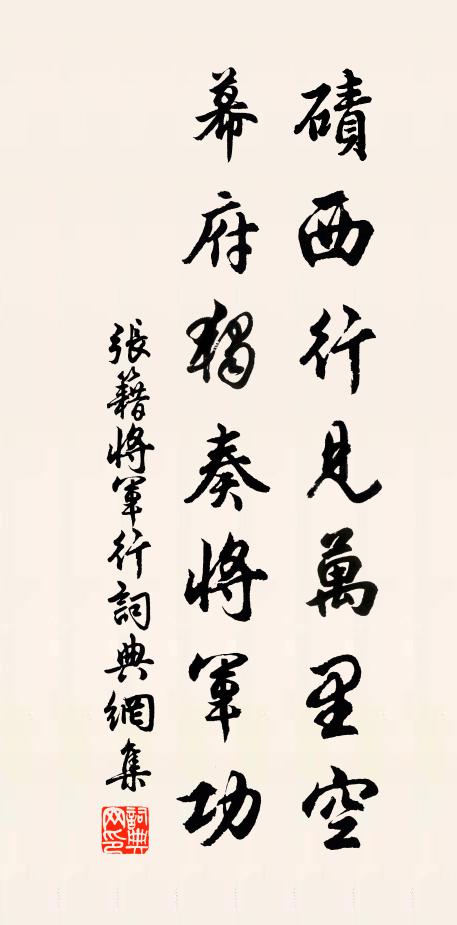 磧西行見萬里空
幕府獨奏將軍功
張籍將軍行詞典網集
詞典網印